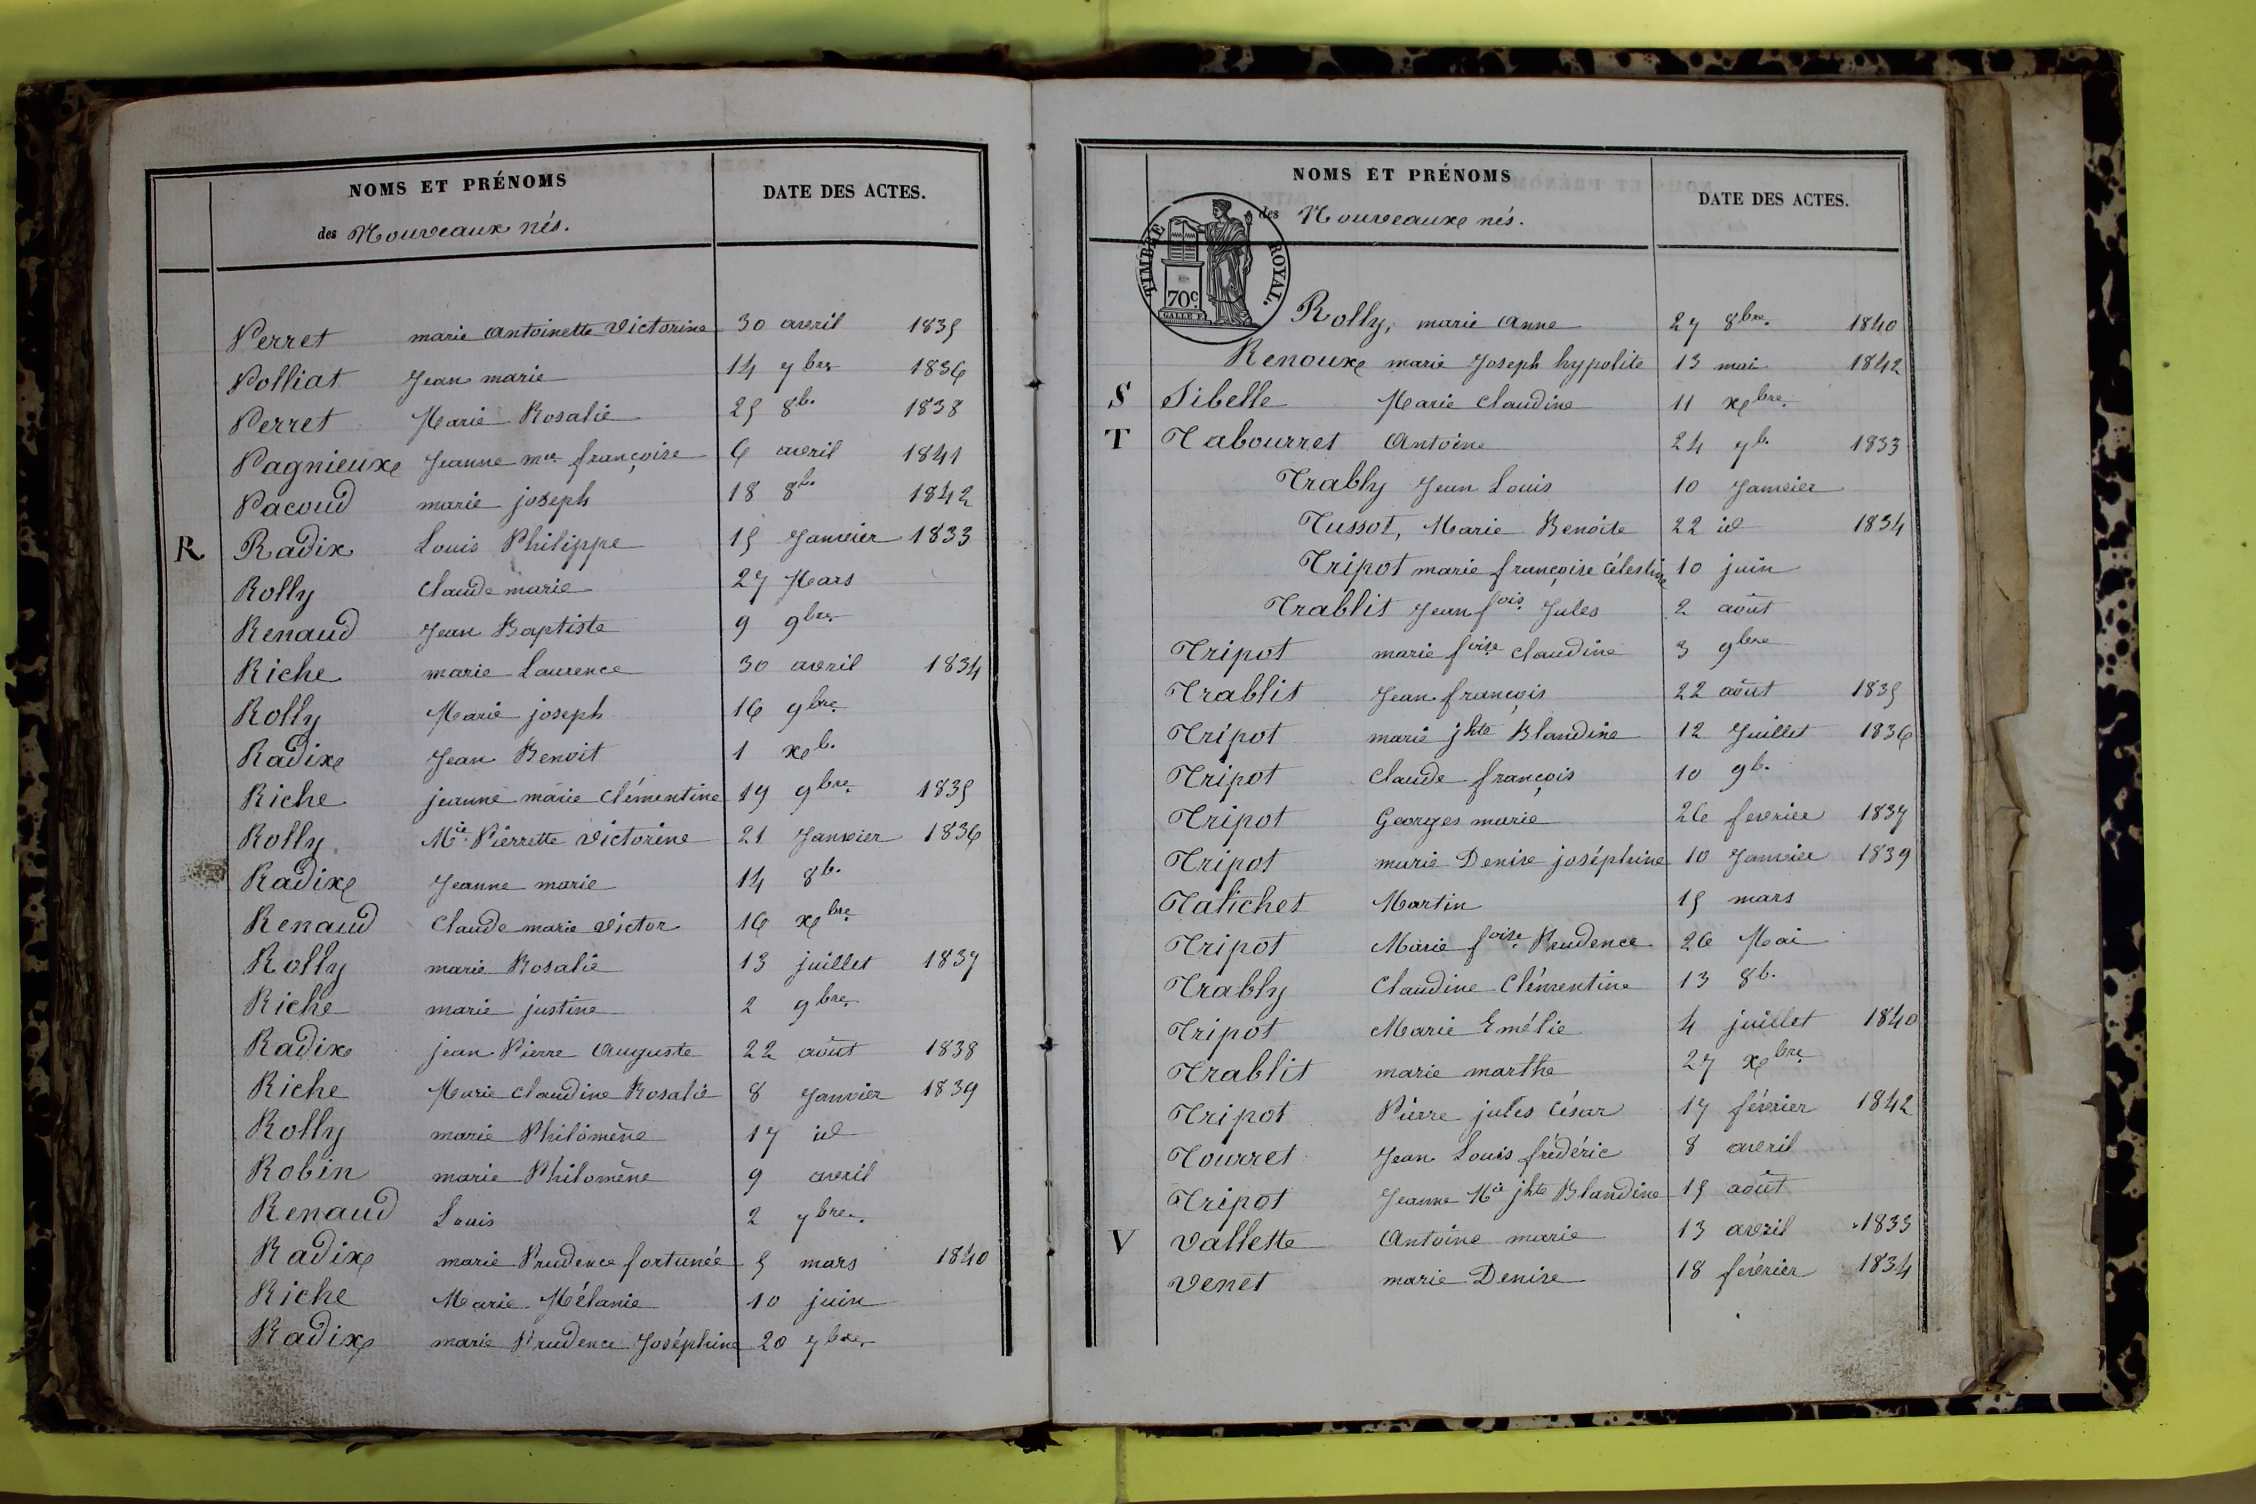 NOMS ET PRÉNOMS
des Nouveaux nés.
DATE DES ACTES.
Perret marie antoinette victorine 30 avril 1835
Polliat Jean marie 14 7bre 1836
Perret Marie Rosalie 25 8b. 1838
Pagnieux Jeanne mie françoise 6 avril 1841
Pacoud marie joseph 18 8b. 1842
R Radix Louis Philippe 15 Janvier 1833
Rolly Claude marie 27 Mars
Renaud Jean Baptiste 9 9bre
Riche marie Laurence 30 avril 1834
Rolly Marie joseph 16 9bre
Radix Jean Benoit 1 xb.
Riche jeanne marie Clémentine 19 9bre 1835
Rolly Mie Pierrette victorine 21 Janvier 1836
Radix Jeanne marie 14 8b.
Renaud Claude marie victor 16 xbre
Rolly marie Rosalie 13 juillet 1837
Riche marie justine 2 9bre
Radix jean Pierre Auguste 22 août 1838
Riche Marie Claudine Rosalie 8 Janvier 1839
Rolly marie Philomène 17 id
Robin marie Philomène 9 avril
Renaud Louis 2 7bre
Radix marie Prudence fortunée 5 mars 1840
Riche Marie Mélanie 10 juin
Radix marie Prudence Joséphine 20 7bre
NOMS ET PRÉNOMS
des Nouveaux nés.
DATE DES ACTES.
TIMBRE ROYAL.
70c
Rolly, marie anne 27 8bre. 1840
Renoux marie Joseph hypolite 13 mai 1842
S Sibelle Marie Claudine 11 xbre.
T Tabourret Antoine 24 7b. 1833
Trably Jean Louis 10 Janvier
Tussot, Marie Benoite 22 id 1834
Tripot marie françoise Célestine 10 juin
Trablit Jean fois Jules 2 août
Tripot marie foise Claudine 3 9bre
Trablit Jean françois 22 août 1835
Tripot marie jhte Blandine 12 Juillet 1836
Tripot Claude françois 10 9b.
Tripot Georges marie 26 fevrier 1837
Tripot marie Denise joséphine 10 Janvier 1839
Talichet Martin 15 mars
Tripot Marie foise Prudence 26 Mai
Trably Claudine Clémentine 13 8b.
Tripot Marie Emélie 4 juillet 1840
Trablit marie marthe 27 xbre
Tripot Pierre jules César 17 février 1842
Tourret Jean Louis frédéric 8 avril
Tripot Jeanne Mie jhte Blandine 15 août
V Vallette Antoine marie 13 avril 1833
Venet marie Denise 18 février 1834